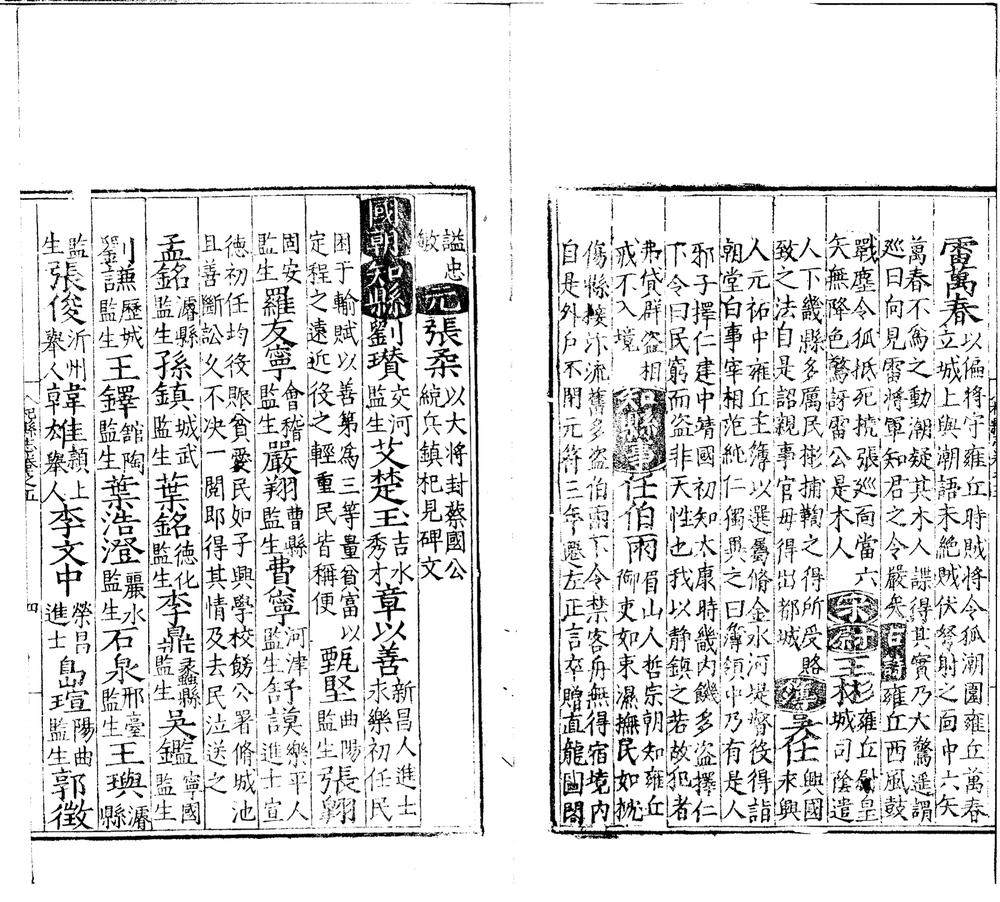 雷萬春以偏將守雍丘時賊將令狐潮圍雍丘萬春
立城上與潮語未絕賊伏弩射之面中六矢
萬春不為之動潮疑其木人諜得其實乃大驚遙謂
巡曰向見雷將軍知君之令嚴矣古詩雍丘西風鼓
戰塵令狐抵死撓張巡面當六
矢無降色驚訝雷公是木人
宋尉王彬彬雍丘尉皇
城司陰遣
人下畿縣多厲民彬捕鞫之得所受賂
致之法自是詔親事官毋得出都城
簿吳任興國
來興
人元祐中雍丘主簿以選屬脩金水河堤督役得詣
朝堂白事宰相范純仁獨異之曰簿領中乃有是人
邪子擇仁建中靖國初知太康時畿內饑多盜擇仁
下令曰民窮而盜非天性也我以静鎮之若故犯者
弗貸群盜相
戒不入境
知縣事任伯雨眉山人哲宗朝知雍丘
御吏如束濕撫民如擾
傷縣接汴流舊多盜伯雨下令禁客舟無得宿境內
自是外戶不閉元符三年遷左正言卒贈直龍圖閣
謚忠
敏
元張柔以大將封蔡國公
統兵鎮杞見碑文
國朝知縣劉瓚交河
監生
艾楚玉吉水
秀才
章以善新昌人進士
永樂初任民
困于輸賦以善第為三等量貧富以
定程之遠近役之輕重民皆稱便
甄堅曲陽
監生
張翱
固安
監生
羅友寧會稽
監生
嚴翔曹縣
監生
費寧河津
監生
舒謨樂平人
進士宣
德初任均徭賑貧愛民如子興學校餙公署脩城池
且善斷訟久不决一閱即得其情及去民泣送之
孟銘濬縣
監生
孫鎮城武
監生
葉銘德化
監生
李鼎蠡縣
監生
吳鑑寧國
監生
劉謙歷城
監生
王鐸館陶
監生
葉浩澄麗水
監生
石泉邢臺
監生
王璵濬
縣
監
生
張俊沂州
舉人
韓雄潁上
舉人
李文中榮昌
進士
島瑄陽曲
監生
郭徵
杞縣志卷之五
四